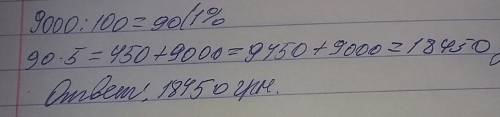 9000:100=90(1%
90·5=450+9000=9450+9000=18450
Ответ: 18450 грн.